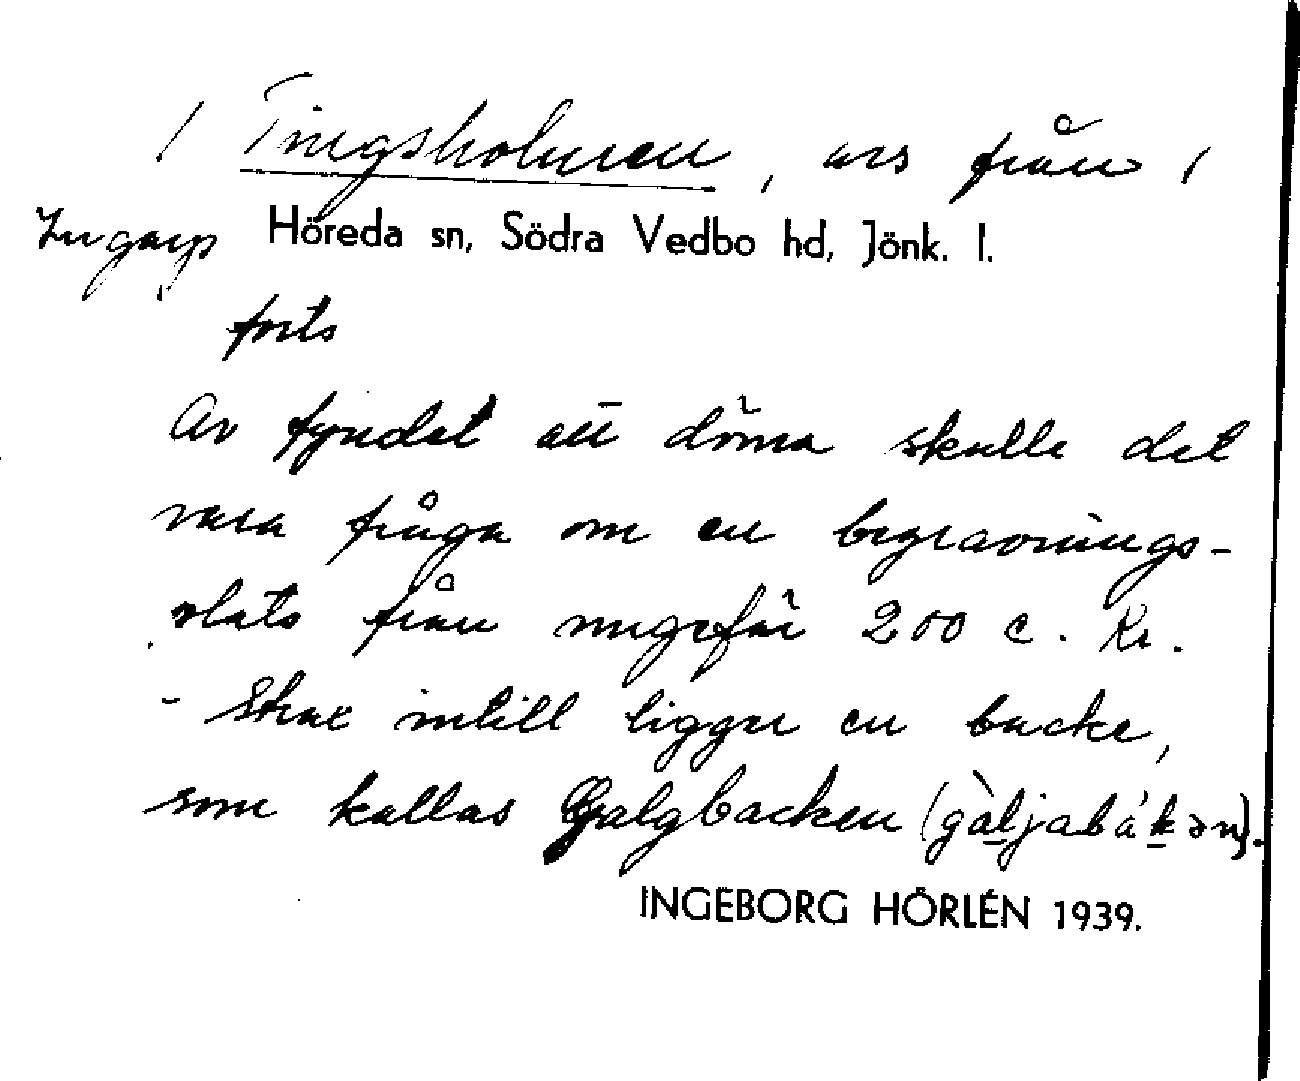 / Tingsholmen, urs från /
Ingarp Höreda sn, Södra Vedbo hd, Jönk. l.
forts
Av fyndet att döma skulle det
vara fråga om en begravnings-
plats från ungefär 200 e. Kr.
- Strax intill ligger en backe,
som kallas Galgbacken (gàljabákən).
INGEBORG HÖRLÉN 1939.